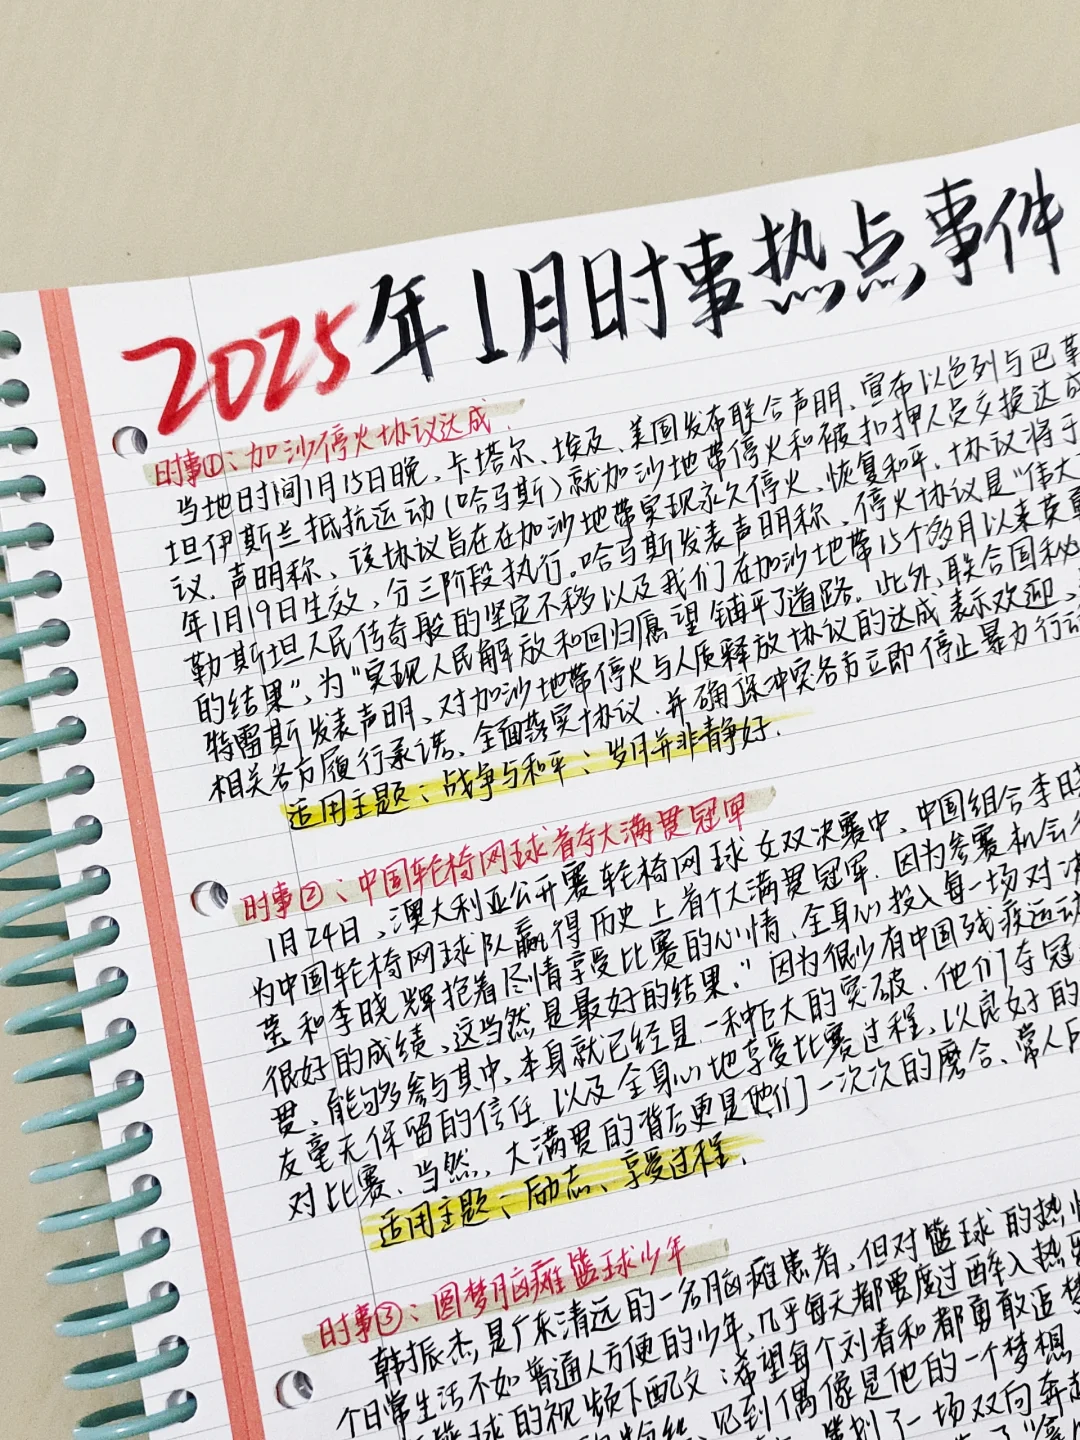 2025年1月时事热点事件
时事①:加沙停火协议达成.
当地时间1月15日晚、卡塔尔、埃及、美国发布联合声明、宣布以色列与巴勒
坦伊斯兰抵抗运动(哈马斯)就加沙地带停火和被扣押人员交换达成
议.声明称、该协议旨在在加沙地带实现永久停火、恢复和平.协议将于
年1月19日生效、分三阶段执行.哈马斯发表声明称、停火协议是“伟大
勒斯坦人民传奇般的坚定不移以及我们在加沙地带15个多月以来英勇
的结果”、为“实现人民解放和回归愿望铺平了道路.此外、联合国秘
特雷斯发表声明、对加沙地带停火与人质释放协议的达成表示欢迎、
相关各方履行承诺、全面落实协议.并确保冲突各方立即停止暴力行动
适用主题:战争与和平;岁月并非静好.
时事②:中国轮椅网球首夺大满贯冠军
1月24日、澳大利亚公开赛轮椅网球女双决赛中、中国组合李
为中国轮椅网球队赢得历史上首个大满贯冠军.因为参赛机会
莹和李晓辉抱着尽情享受比赛的心情、全身心投入每一场对决
很好的成绩、这当然是最好的结果.”因为很少有中国残疾运动
贯、能够参与其中、本身就已经是一种巨大的突破.他们夺冠
友毫无保留的信任.以及全身心地享受比赛过程、以良好的
对比赛、当然、大满贯的背后更是他们一次次的磨合、常人
适用主题:励志、享受过程.
时事③:圆梦脑瘫篮球少年
韩振杰,是广东清远的一名脑瘫患者、但对篮球的热
个日常生活不如普通人方便的少年、几乎每天都要度过
篮球的视频下配文:希望每个刘春和都勇敢追梦
见到偶像是他的一个梦想
策划了一场双向奔